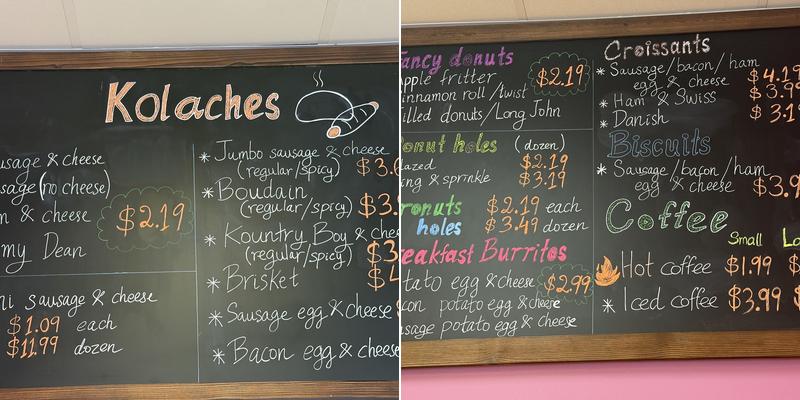 Kolaches
sausage & cheese
sausage (no cheese)
& cheese
$2.19
my Dean
sausage & cheese
$1.09 each
$11.99 dozen
* Jumbo sausage & cheese
(regular/spicy)
* Boudain
(regular/spicy)
* Kountry Boy & chee
(regular/spicy)
* Brisket
* Sausage egg & cheese
* Bacon egg & cheese
Fancy donuts
Apple fritter
cinnamon roll/twist
filled donuts/Long John
$2.19
Donut holes (dozen)
glazed $2.19
& sprinkle $3.19
cronuts $2.19 each
holes $3.49 dozen
Breakfast Burritos
potato egg & cheese $2.99
bacon potato egg & cheese
sausage potato egg & cheese
Croissants
* Sausage/bacon/ham
egg & cheese $4.19
* Ham & Swiss $3.9
* Danish $3.1
Biscuits
* Sausage/bacon/ham
egg & cheese $3.9
Coffee
Small
Hot coffee $1.99
* Iced coffee $3.99